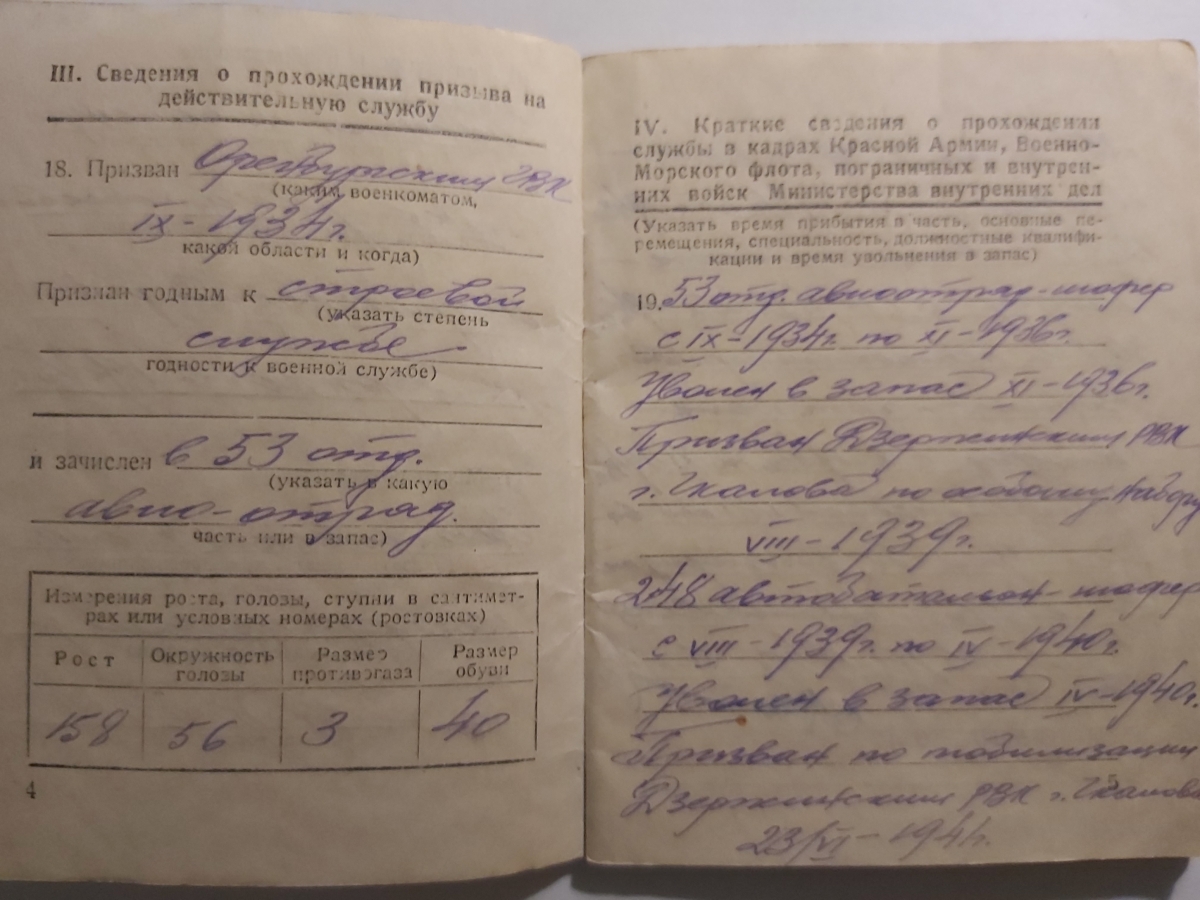 III. Сведения о прохождении призыва на
действительную службу
18. Призван Оренбургским ГВК
(каким военкоматом,
IX - 1934г.
какой области и когда)
Признан годным к строевой
(указать степень
службе
годности к военной службе)
и зачислен в 53 отд.
(указать в какую
авио-отряд.
часть или в запас)
Измерения роста, головы, ступни в сантимет-
рах или условных номерах (ростовках)
Рост Окружность головы Размер противогаза Размер обуви
158 56 3 40
4
IV. Краткие сведения о прохождении
службы в кадрах Красной Армии, Военно-
Морского флота, пограничных и внутрен-
них войск Министерства внутренних дел
(Указать время прибытия в часть, основные пе-
ремещения, специальность, должностные квалифи-
кации и время увольнения в запас)
19. 53 отд. авиоотряд - шофер
с IX - 1934г. по XI - 1936г.
Уволен в запас XI - 1936г.
Призван Дзержинским РВК
г. Чкалова по особому набору
VIII - 1939г.
248 автобатальон - шофер
с VIII - 1939г. по IV - 1940г.
Уволен в запас IV - 1940г.
Призван по мобилизации
5
Дзержинским РВК г. Чкалова
23/VI - 1941г.